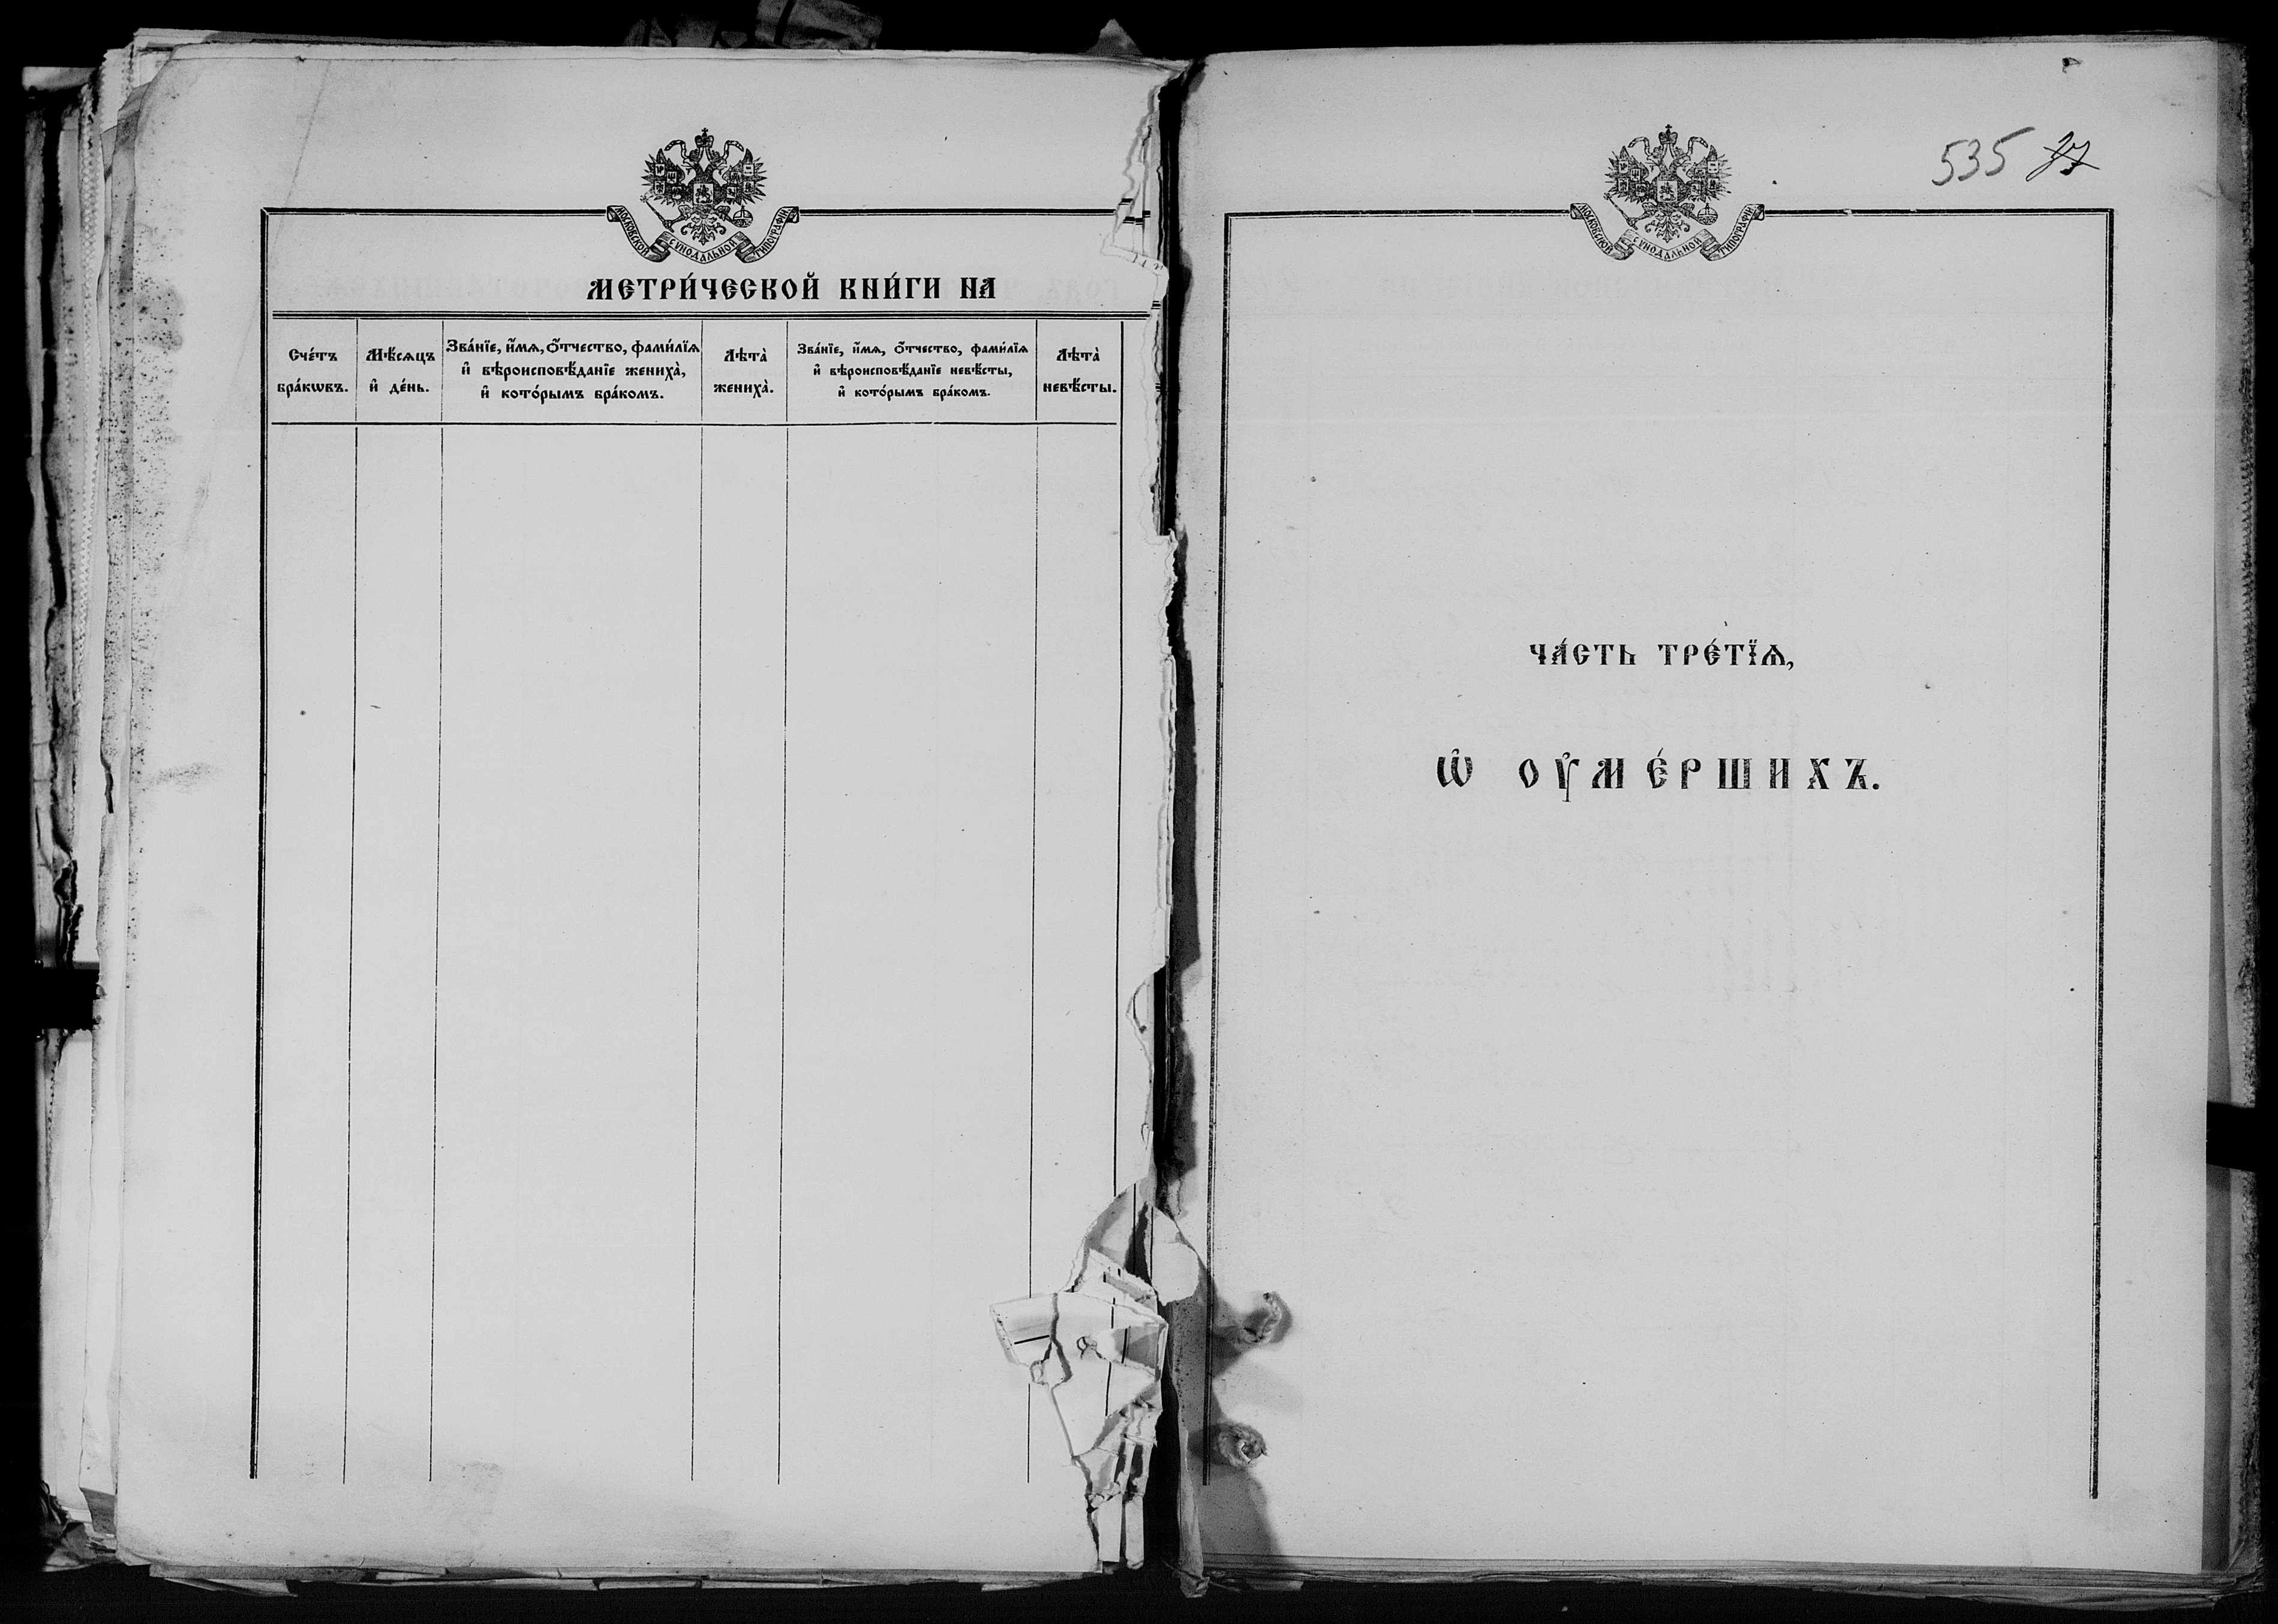 МОСКОВСКОЙ СѴНОДАЛЬНОЙ ТИПОГРАФІИ
МЕТРИ́ЧЕСКОЙ КНИ́ГИ НА
Сче́тъ
бра́кѡвъ.
Мѣ́сѧцъ
и҆ де́нь.
Зва́нїе, и҆́мѧ, ѻ҆́тчество, фами́лїѧ
и҆ вѣроисповѣ́данїе жениха̀,
и҆ кото́рымъ бра́комъ.
Лѣта̀
жениха̀.
Зва́нїе, и҆́мѧ, ѻ҆́тчество, фами́лїѧ
и҆ вѣроисповѣ́данїе невѣ́сты,
и҆ кото́рымъ бра́комъ.
Лѣта̀
невѣ́сты.
535
МОСКОВСКОЙ СѴНОДАЛЬНОЙ ТИПОГРАФІИ
ЧА́СТЬ ТРЕ́ТЇѦ,
Ѽ ОУ҆МЕ́РШИХЪ.